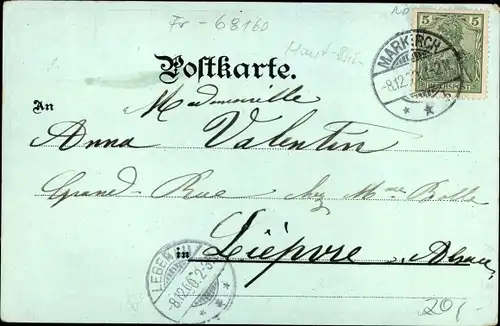 Fr - 68160
5
MARKIRCH
-8.12.
Postkarte.
An
Mademoiselle
Anna Valentin
Grand-Rue chez Mme Bolle
in Lièpvre, Alsace
LEBER
-8.12.
20,-